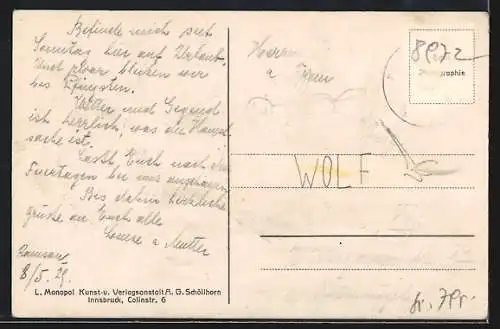 Befinde mich seit
Sonntag hier auf Urlaub.
Und zwar bleiben wir
bis Pfingsten.
Wetter und Gegend
ist herrlich, was die Haupt
sache ist.
Laßt Euch nach den
Feiertagen bei uns anschauen
Bis dahin herzliche
grüße an Euch alle
Louise u Mutter
Ramsau
8/5.29.
L. Monopol Kunst-u. Verlagsanstalt A. G. Schöllhorn
Innsbruck, Colinstr. 6
Herrn
u Frau
WOLF
Photographie